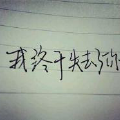 我终于失去了你